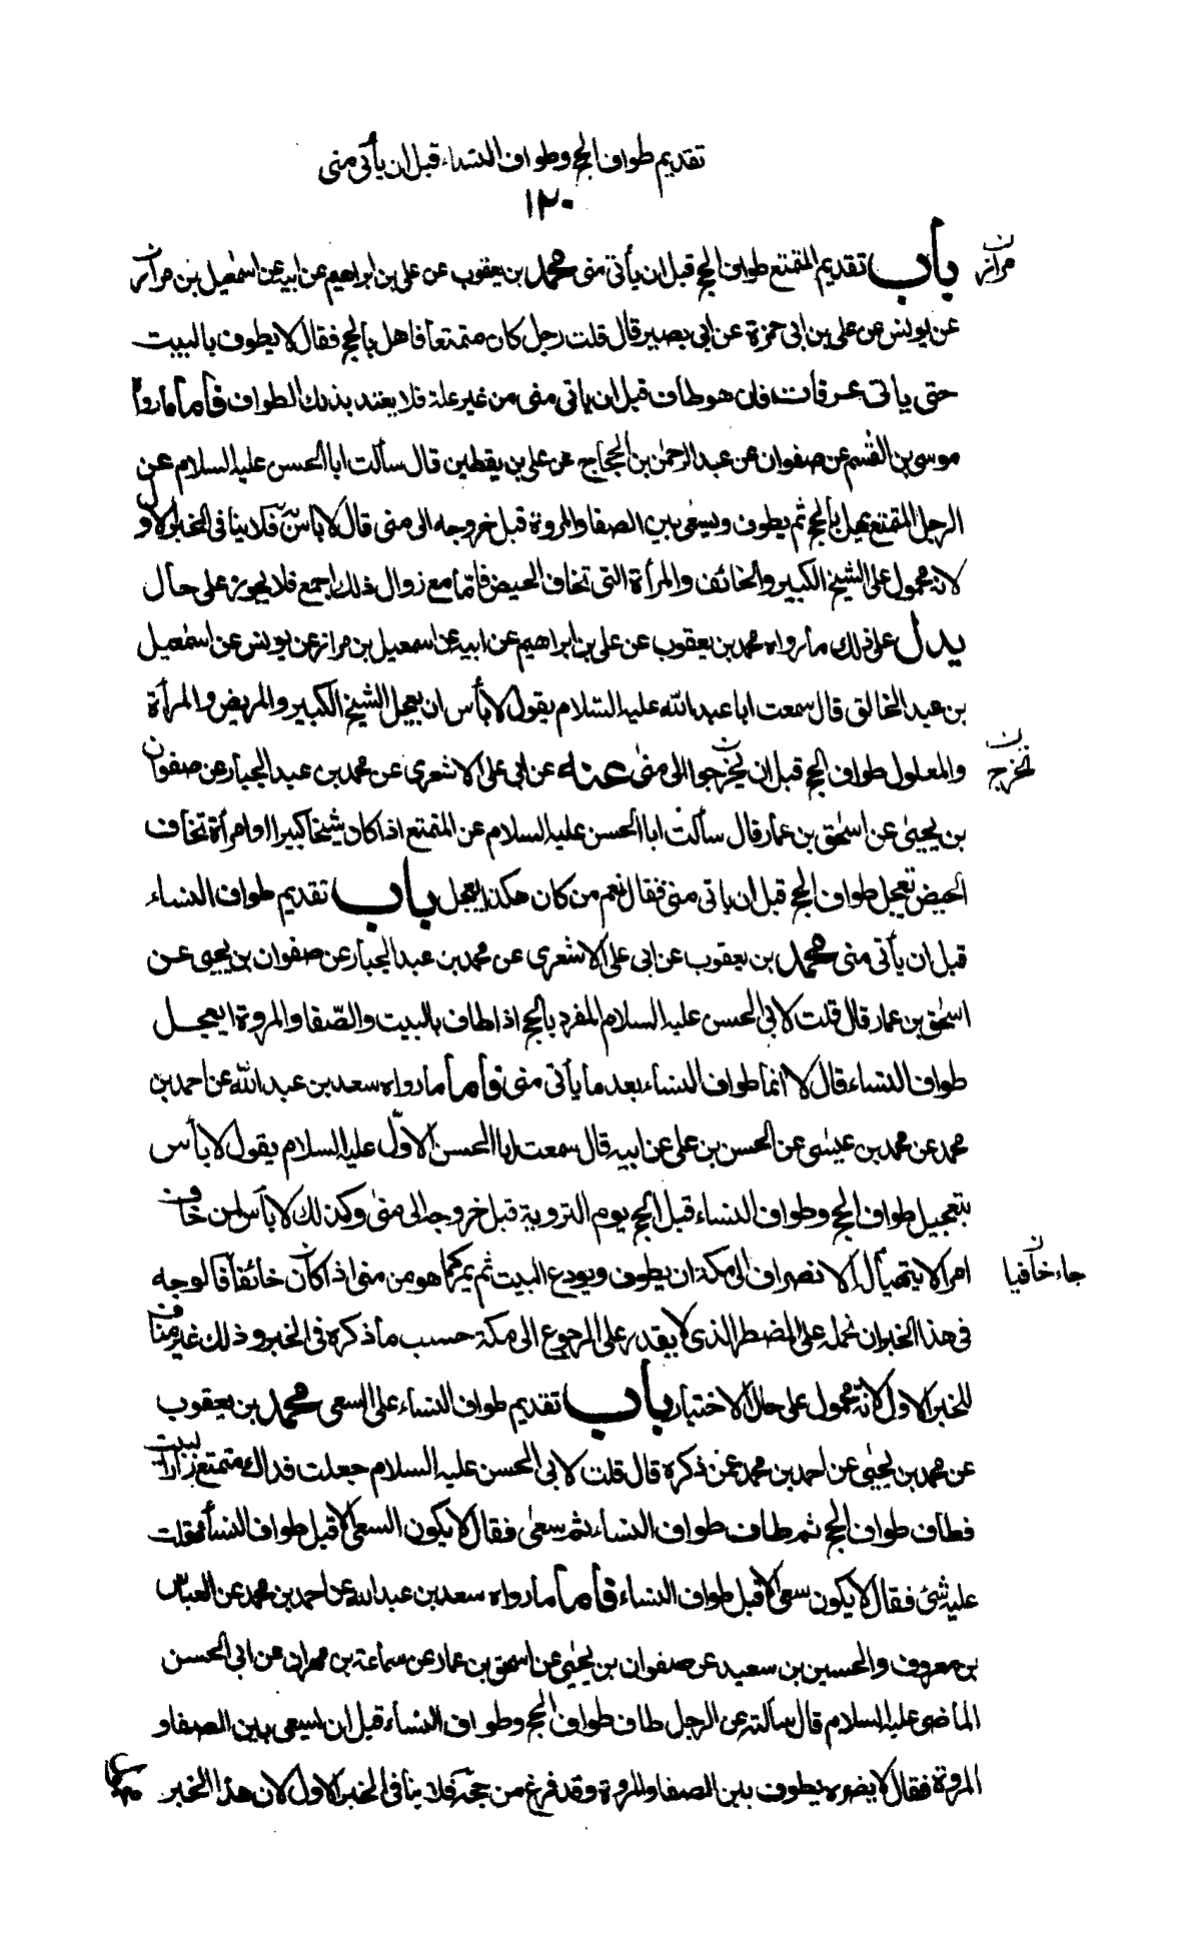 تقديم طواف الحج وطواف النساء قبل ان يأتى منى
١٢٠
باب تقديم المتمتع طواف الحج قبل ان يأتى منى محمد بن يعقوب عن على بن ابراهيم عن ابيه عن اسمعيل بن مرار
ن
مراز
عن يونس عن على بن ابى حمزة عن ابى بصير قال قلت رجل كان متمتعا فاهل بالحج فقال لا يطوف بالبيت
حتى ياتى عرفات فان هو طاف قبل ان ياتى منى من غير علة فلا يعتد بذلك الطواف فاما ما رواه
موسى بن القسم عن صفوان عن عبد الرحمن بن الحجاج عن على بن يقطين قال سألت ابا الحسن عليه السلام عن
الرجل المتمتع يهل بالحج ثم يطوف ويسعى بين الصفا والمروة قبل خروجه الى منى قال لا باس به فلا ينافى الخبر الاول
لانه محمول على الشيخ الكبير والخائف والمرأة التى تخاف الحيض فاما مع زوال ذلك اجمع فلا يجوز على حال
يدل على ذلك ما رواه محمد بن يعقوب عن على بن ابراهيم عن ابيه عن اسمعيل بن مراز عن يونس عن اسمعيل
بن عبد الخالق قال سمعت ابا عبد الله عليه السلام يقول لا بأس ان يعجل الشيخ الكبير والمريض والمرأة
والمعلول طواف الحج قبل ان يخرجوا الى منى عنه عن ابى على الاشعرى عن محمد بن عبد الجبار عن صفوان
ن
تخرج
بن يحيى عن اسحق بن عمار قال سألت ابا الحسن عليه السلام عن المتمتع اذا كان شيخا كبيرا او امرأة تخاف
الحيض تعجل طواف الحج قبل ان ياتى منى فقال نعم من كان هكذا يعجل باب تقديم طواف النساء
قبل ان يأتى منى محمد بن يعقوب عن ابى على الاشعرى عن محمد بن عبد الجبار عن صفوان بن يحيى عن
اسحق بن عمار قال قلت لابى الحسن عليه السلام المفرد بالحج اذا طاف بالبيت والصّفا والمروة ايعجل
طواف النساء قال لا انما طواف النساء بعد ما يأتى منى فاما ما رواه سعد بن عبد الله عن احمد بن
محمد عن محمد بن عيسى عن الحسن بن على عن ابيه قال سمعت ابا الحسن الاوّل عليه السلام يقول لا بأس
بتعجيل طواف الحج وطواف النساء قبل الحج يوم التروية قبل خروجه الى منى وكذلك لا بأس لمن خاف
امرا لا يتهيأ له الانصراف الى مكة ان يطوف ويودع البيت ثم يمر كما هو من منى اذا كان خائفا فالوجه
ن
جاء خافيا
فى هذا الخبر ان نحمله على المضطر الذى لا يقدر على الرجوع الى مكة حسب ما ذكره فى الخبر وذلك غير مناف
للخبر الاول لانه محمول على حال الاختيار باب تقديم طواف النساء على السعى محمد بن يعقوب
عن محمد بن يحيى عن احمد بن محمد عمن ذكره قال قلت لابى الحسن عليه السلام جعلت فداك متمتع زار البيت
فطاف طواف الحج ثم طاف طواف النساء ثم سعى فقال لا يكون السعى الا قبل طواف النساء فقلت
عليه شئ فقال لا يكون سعى الا قبل طواف النساء فاما ما رواه سعد بن عبد الله عن احمد بن محمد عن العباس
بن معروف والحسين بن سعيد عن صفوان بن يحيى عن اسحق بن عمار عن سماعة بن مهران عن ابى الحسن
الماضى عليه السلام قال سألته عن الرجل طاف طواف الحج وطواف النساء قبل ان يسعى بين الصفا و
المروة فقال لا يضره يطوف بين الصفا والمروة وقد فرغ من حجه فلا ينافى الخبر الاول لان هذا الخبر